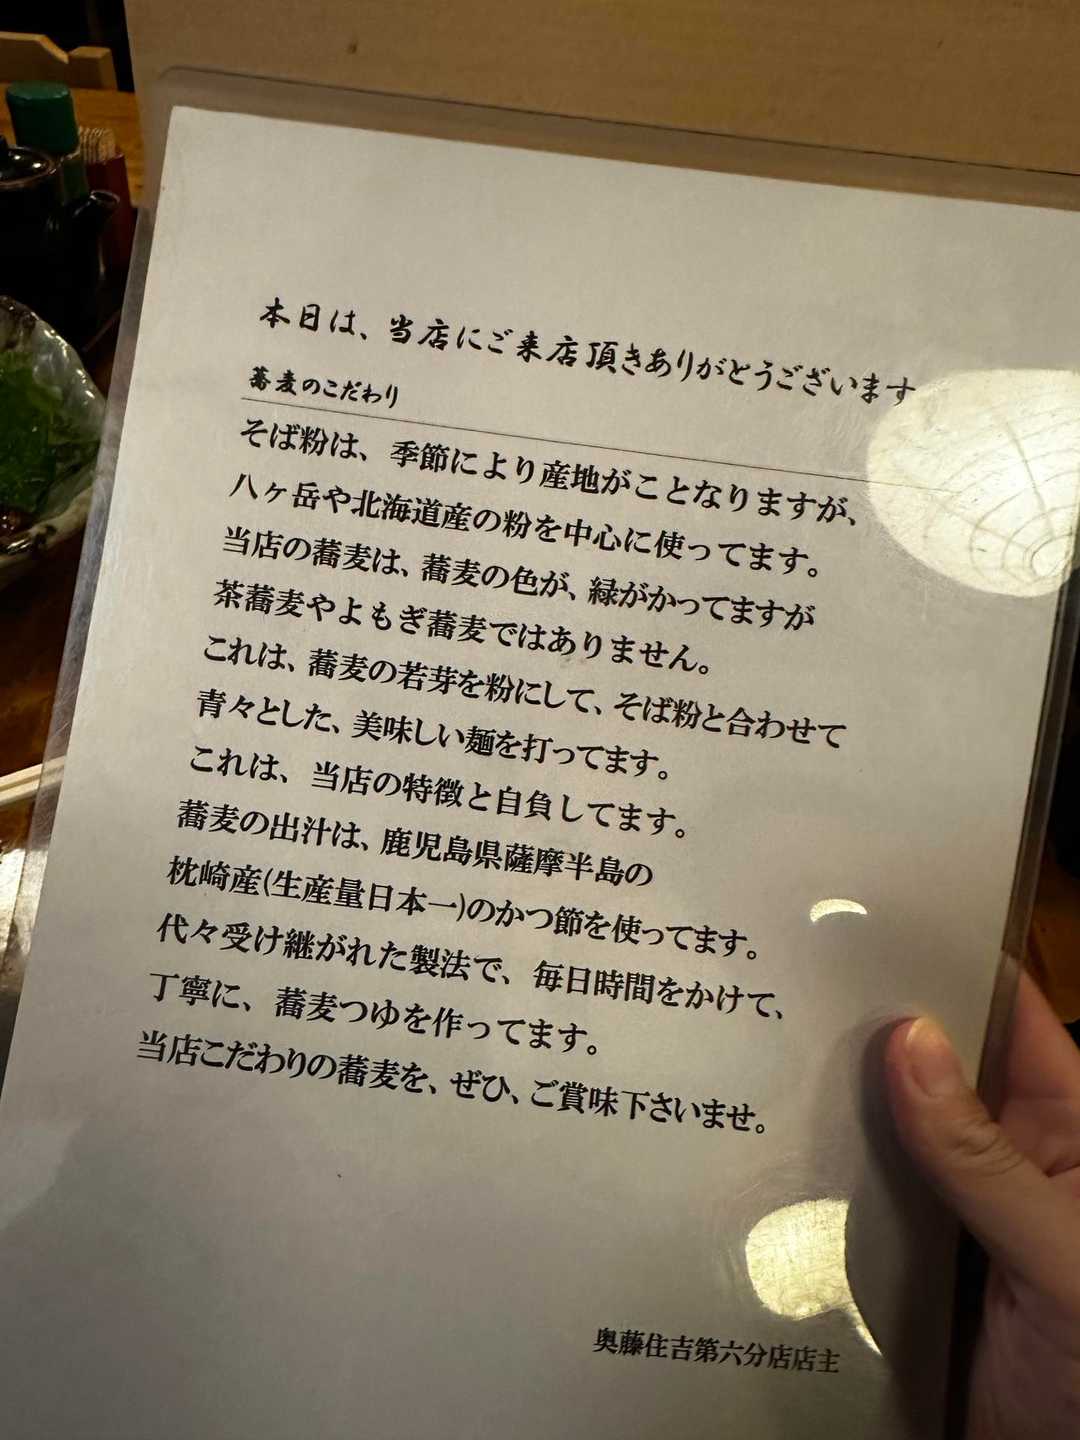 本日は、当店にご来店頂きありがとうございます
蕎麦のこだわり
そば粉は、季節により産地がことなりますが、
八ヶ岳や北海道産の粉を中心に使ってます。
当店の蕎麦は、蕎麦の色が、緑がかってますが
茶蕎麦やよもぎ蕎麦ではありません。
これは、蕎麦の若芽を粉にして、そば粉と合わせて
青々とした、美味しい麺を打ってます。
これは、当店の特徴と自負してます。
蕎麦の出汁は、鹿児島県薩摩半島の
枕崎産(生産量日本一)のかつ節を使ってます。
代々受け継がれた製法で、毎日時間をかけて、
丁寧に、蕎麦つゆを作ってます。
当店こだわりの蕎麦を、ぜひ、ご賞味下さいませ。
奥藤住吉第六分店店主